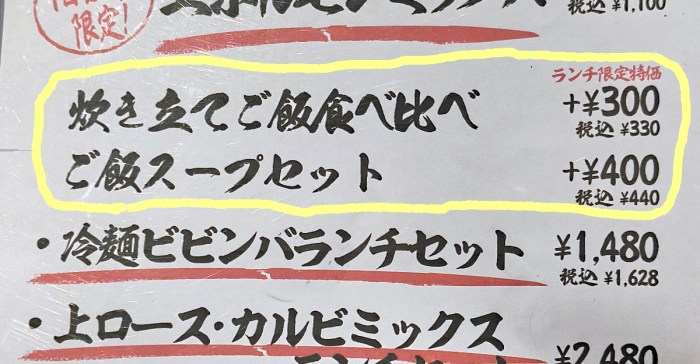 限定!
税込 ¥1,100
ランチ限定特価
炊き立てご飯食べ比べ +¥300
税込 ¥330
ご飯スープセット +¥400
税込 ¥440
・冷麺ビビンバランチセット ¥1,480
税込 ¥1,628
・上ロース・カルビミックス
¥2,480